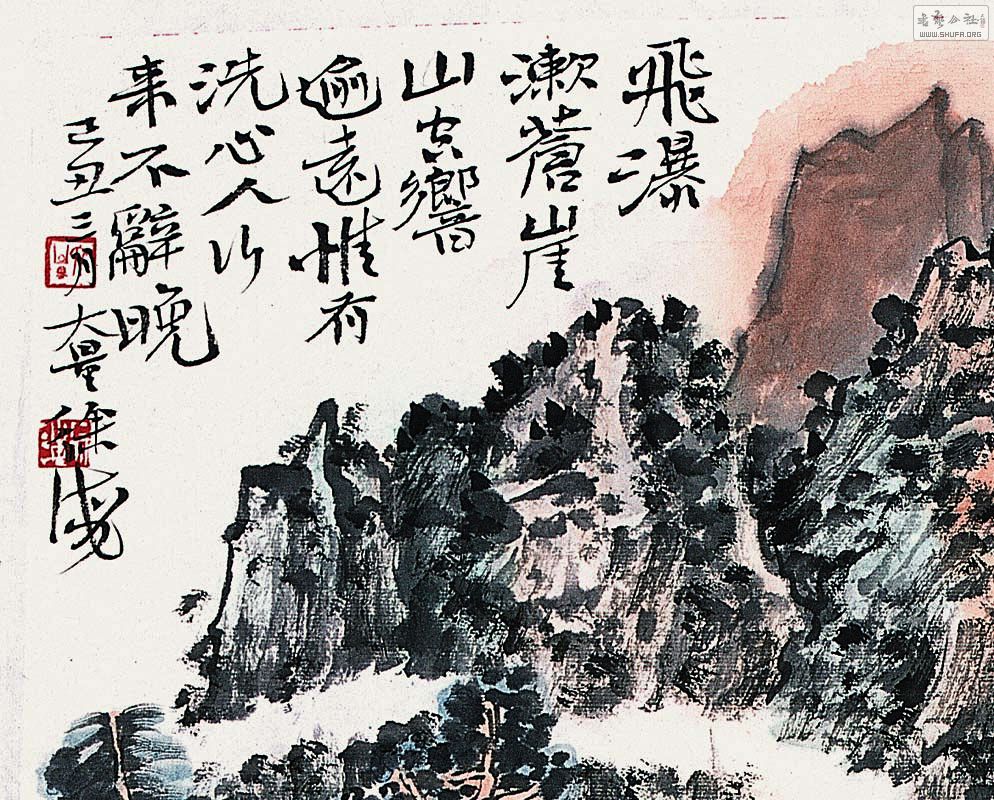 飛瀑
漱蒼崖
山空響
逾遠惟有
洗心人行
来不辭晚
己丑三月大量徐
书法公社
WWW.SHUFA.ORG